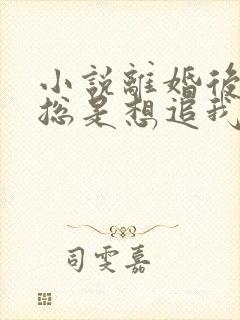 小說離婚後
總是想追我
司雯嘉